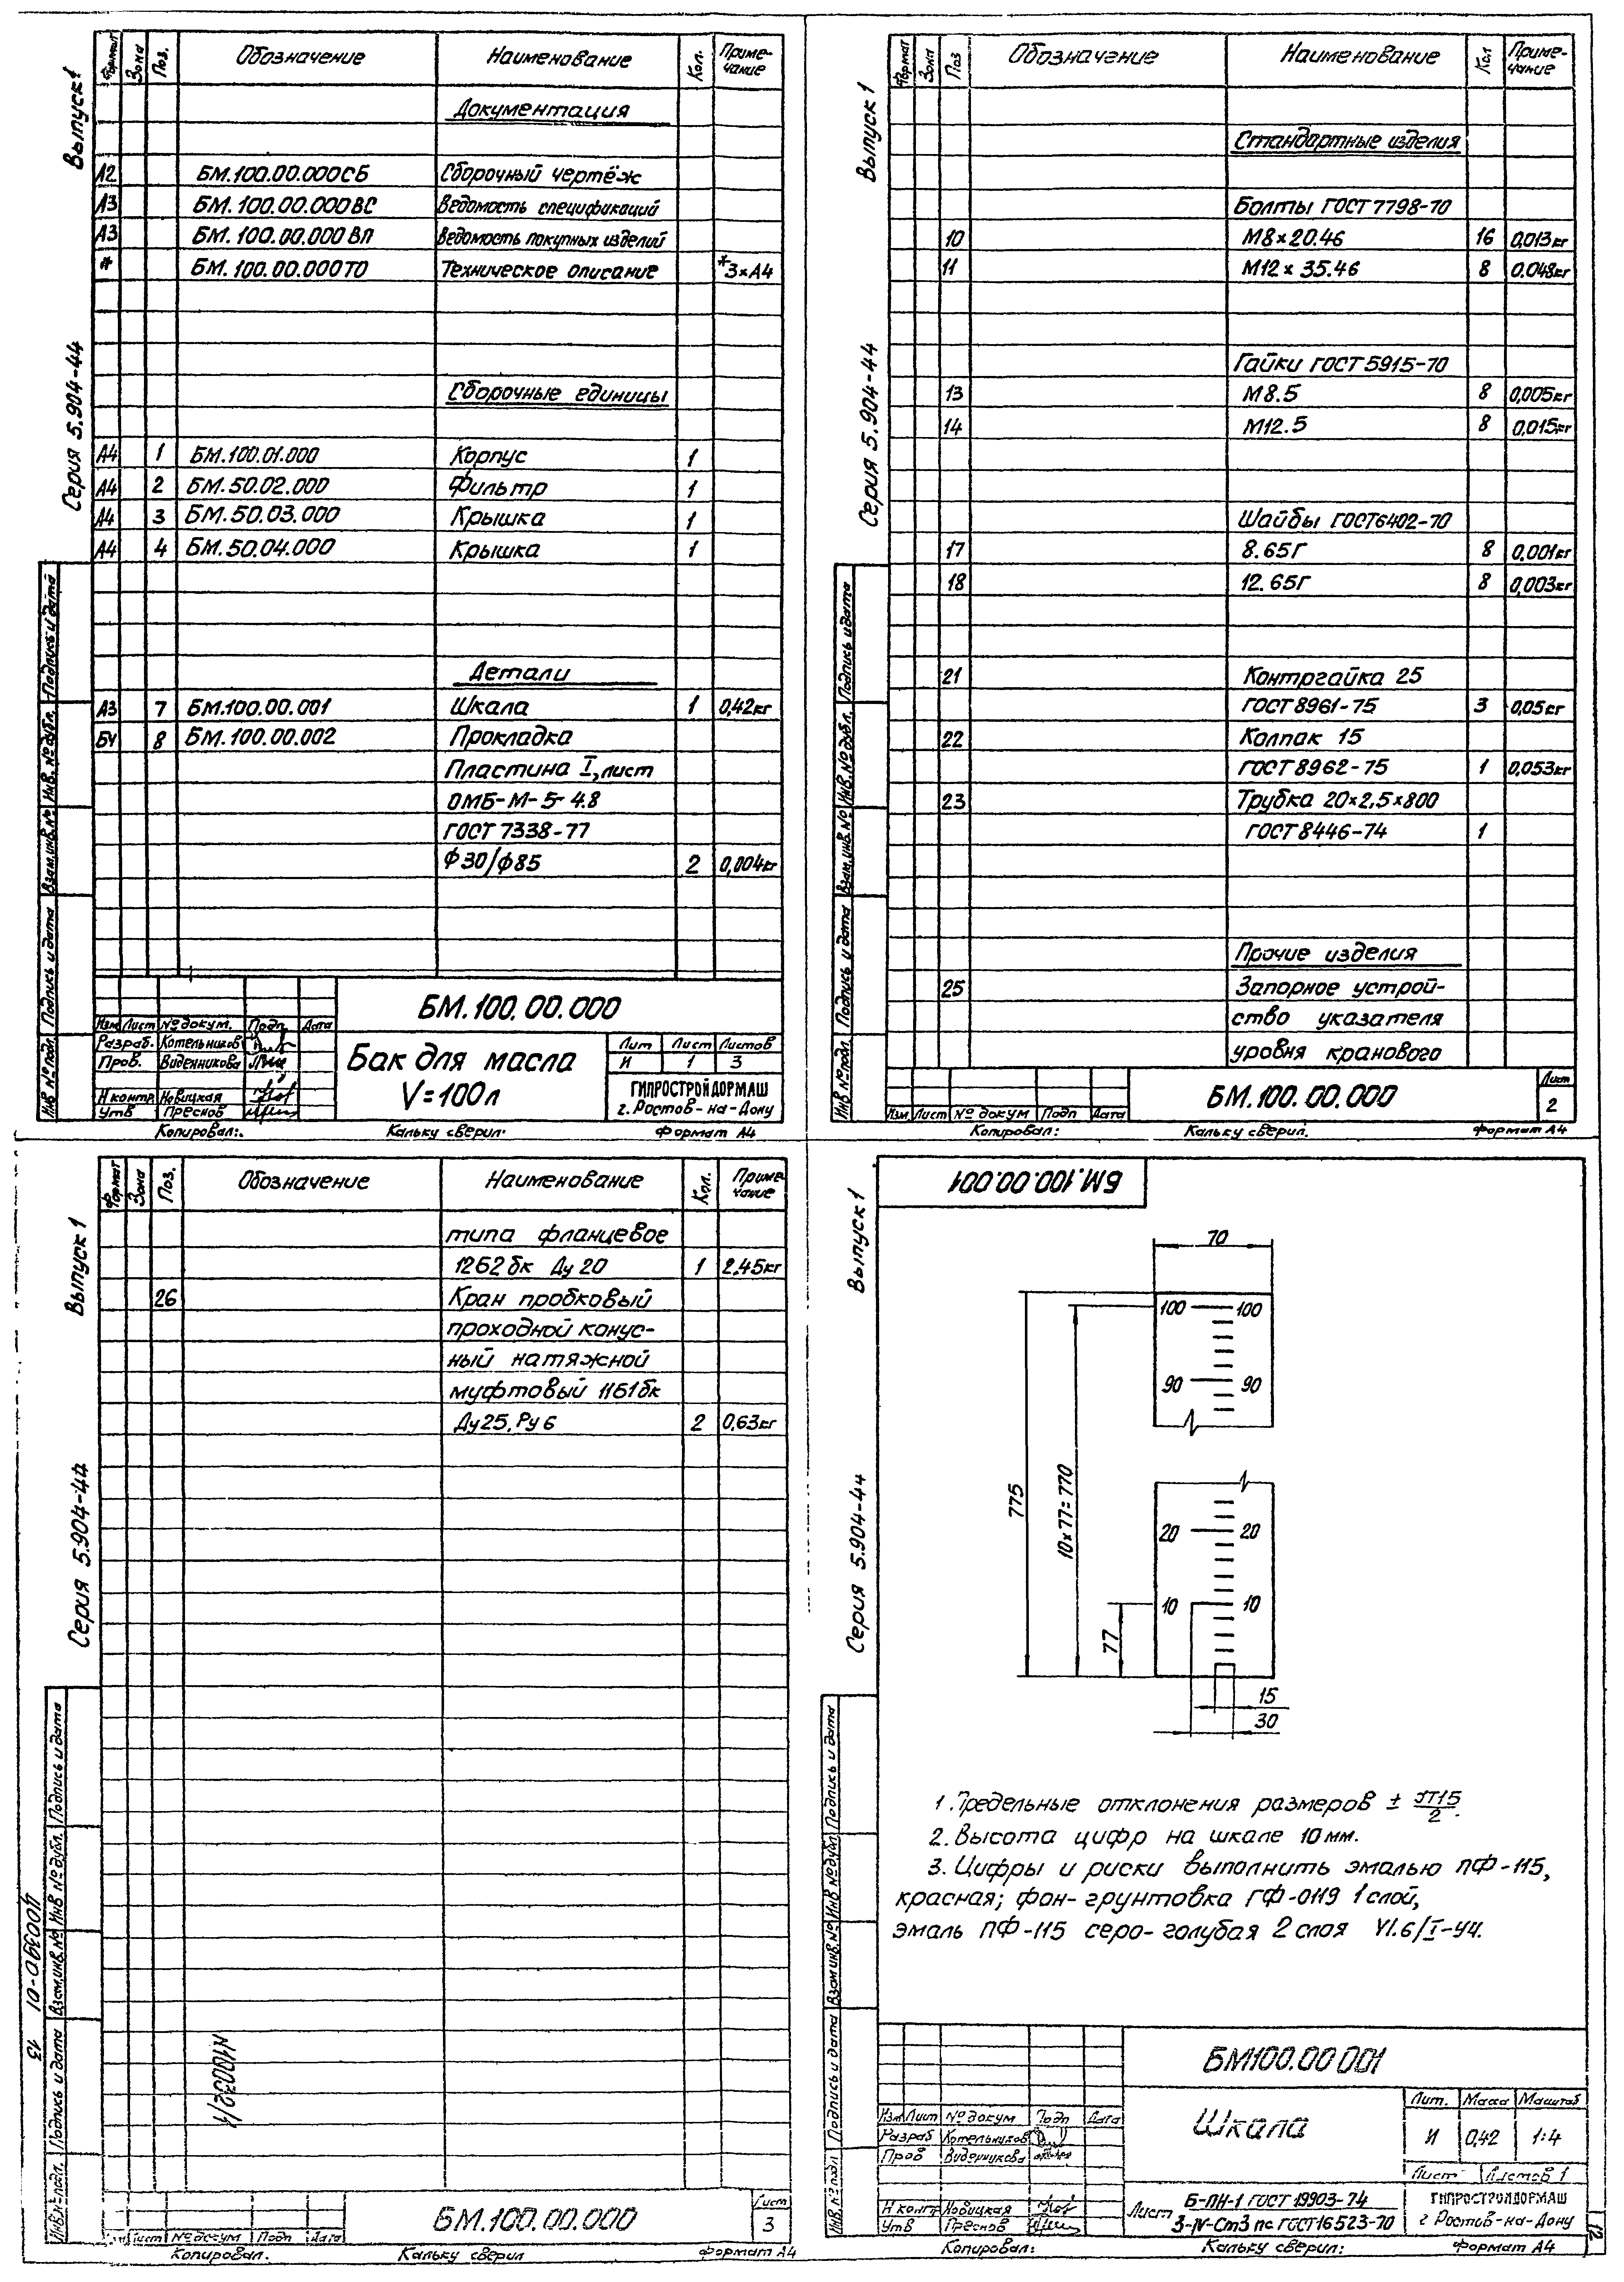 Выпуск 1
Серия 5.904-44
Формат Зона Поз. Обозначение Наименование Кол. Приме-чание
Документация
А2 БМ.100.00.000СБ Сборочный чертёж
А3 БМ.100.00.000ВС Ведомость спецификаций
А3 БМ.100.00.000ВП Ведомость покупных изделий
* БМ.100.00.000ТО Техническое описание *3×А4
Сборочные единицы
А4 1 БМ.100.01.000 Корпус 1
А4 2 БМ.50.02.000 Фильтр 1
А4 3 БМ.50.03.000 Крышка 1
А4 4 БМ.50.04.000 Крышка 1
Детали
А3 7 БМ.100.00.001 Шкала 1 0,42кг
БЧ 8 БМ.100.00.002 Прокладка
Пластина I, лист
ОМБ-М-5-4.8
ГОСТ 7338-77
Ф30/ф85 2 0,004кг
Инв. № подл. Подпись и дата Взам. инв. № Инв. № дубл. Подпись и дата
БМ.100.00.000
Изм Лист № докум. Подп Дата
Разраб. Котельников
Пров. Виденникова
Н контр Новицкая
Утв Преснов
Бак для масла
V=100л
Лит Лист Листов
И 1 3
ГИПРОСТРОЙДОРМАШ
г. Ростов-на-Дону
Копировал: Кальку сверил: Формат А4
Выпуск 1
Серия 5.904-44
Формат Зона Поз Обозначение Наименование Кол Приме-чание
Стандартные изделия
Болты ГОСТ 7798-70
10 М8×20.46 16 0,013кг
11 М12×35.46 8 0.048кг
Гайки ГОСТ 5915-70
13 М8.5 8 0,005кг
14 М12.5 8 0,015кг
Шайбы ГОСТ6402-70
17 8.65Г 8 0.001кг
18 12.65Г 8 0,003кг
21 Контргайка 25
ГОСТ 8961-75 3 0,05кг
22 Колпак 15
ГОСТ 8962-75 1 0,053кг
23 Трубка 20×2,5×800
ГОСТ 8446-74 1
Прочие изделия
25 Запорное устрой-
ство указателя
уровня кранового
Инв № подл Подпись и дата Взам. инв. № Инв. № дубл. Подпись и дата
Изм. Лист № докум Подп Дата
БМ.100.00.000
Лист
2
Копировал: Кальку сверил. Формат А4
Выпуск 1
Серия 5.904-44
Формат Зона Поз. Обозначение Наименование Кол. Приме чание
типа фланцевое
12б2бк Ду 20 1 2,45кг
26 Кран пробковый
проходной конус-
ный натяжной
муфтовый 11б1бк
Ду25, Ру6 2 0,63кг
Инв. № подл. Подпись и дата Взам. инв. № Инв № дубл. Подпись и дата
13
Лист № докум Подп Дата
БМ.100.00.000
Лист
3
Копировал. Кальку сверил Формат А4
Выпуск 1
Серия 5.904-44
БМ.100.00.001
70
100 100
90 90
775
10×77=770
20 20
10 10
77
15
30
1. Предельные отклонения размеров ± JT15/2.
2. Высота цифр на шкале 10мм.
3. Цифры и риски выполнить эмалью ПФ-115,
красная; фон-грунтовка ГФ-0119 1 слой,
эмаль ПФ-115 серо-голубая 2 слоя VI.6/I-У4.
Инв. № подл Подпись и дата Взам инв. № Инв № дубл. Подпись и дата
БМ100.00 001
Изм Лист № докум Подп Дата
Разраб Котельников
Пров Виденникова
Н контр Новицкая
Утв Преснов
Шкала
Лит. Масса Масштаб
И 0,42 1:4
Лист Листов 1
Лист Б-ПН-1 ГОСТ 19903-74
3-IV-Ст3 пс ГОСТ16523-70
ГИПРОСТРОЙДОРМАШ
г Ростов-на-Дону
12
Копировал: Кальку сверил: Формат А4